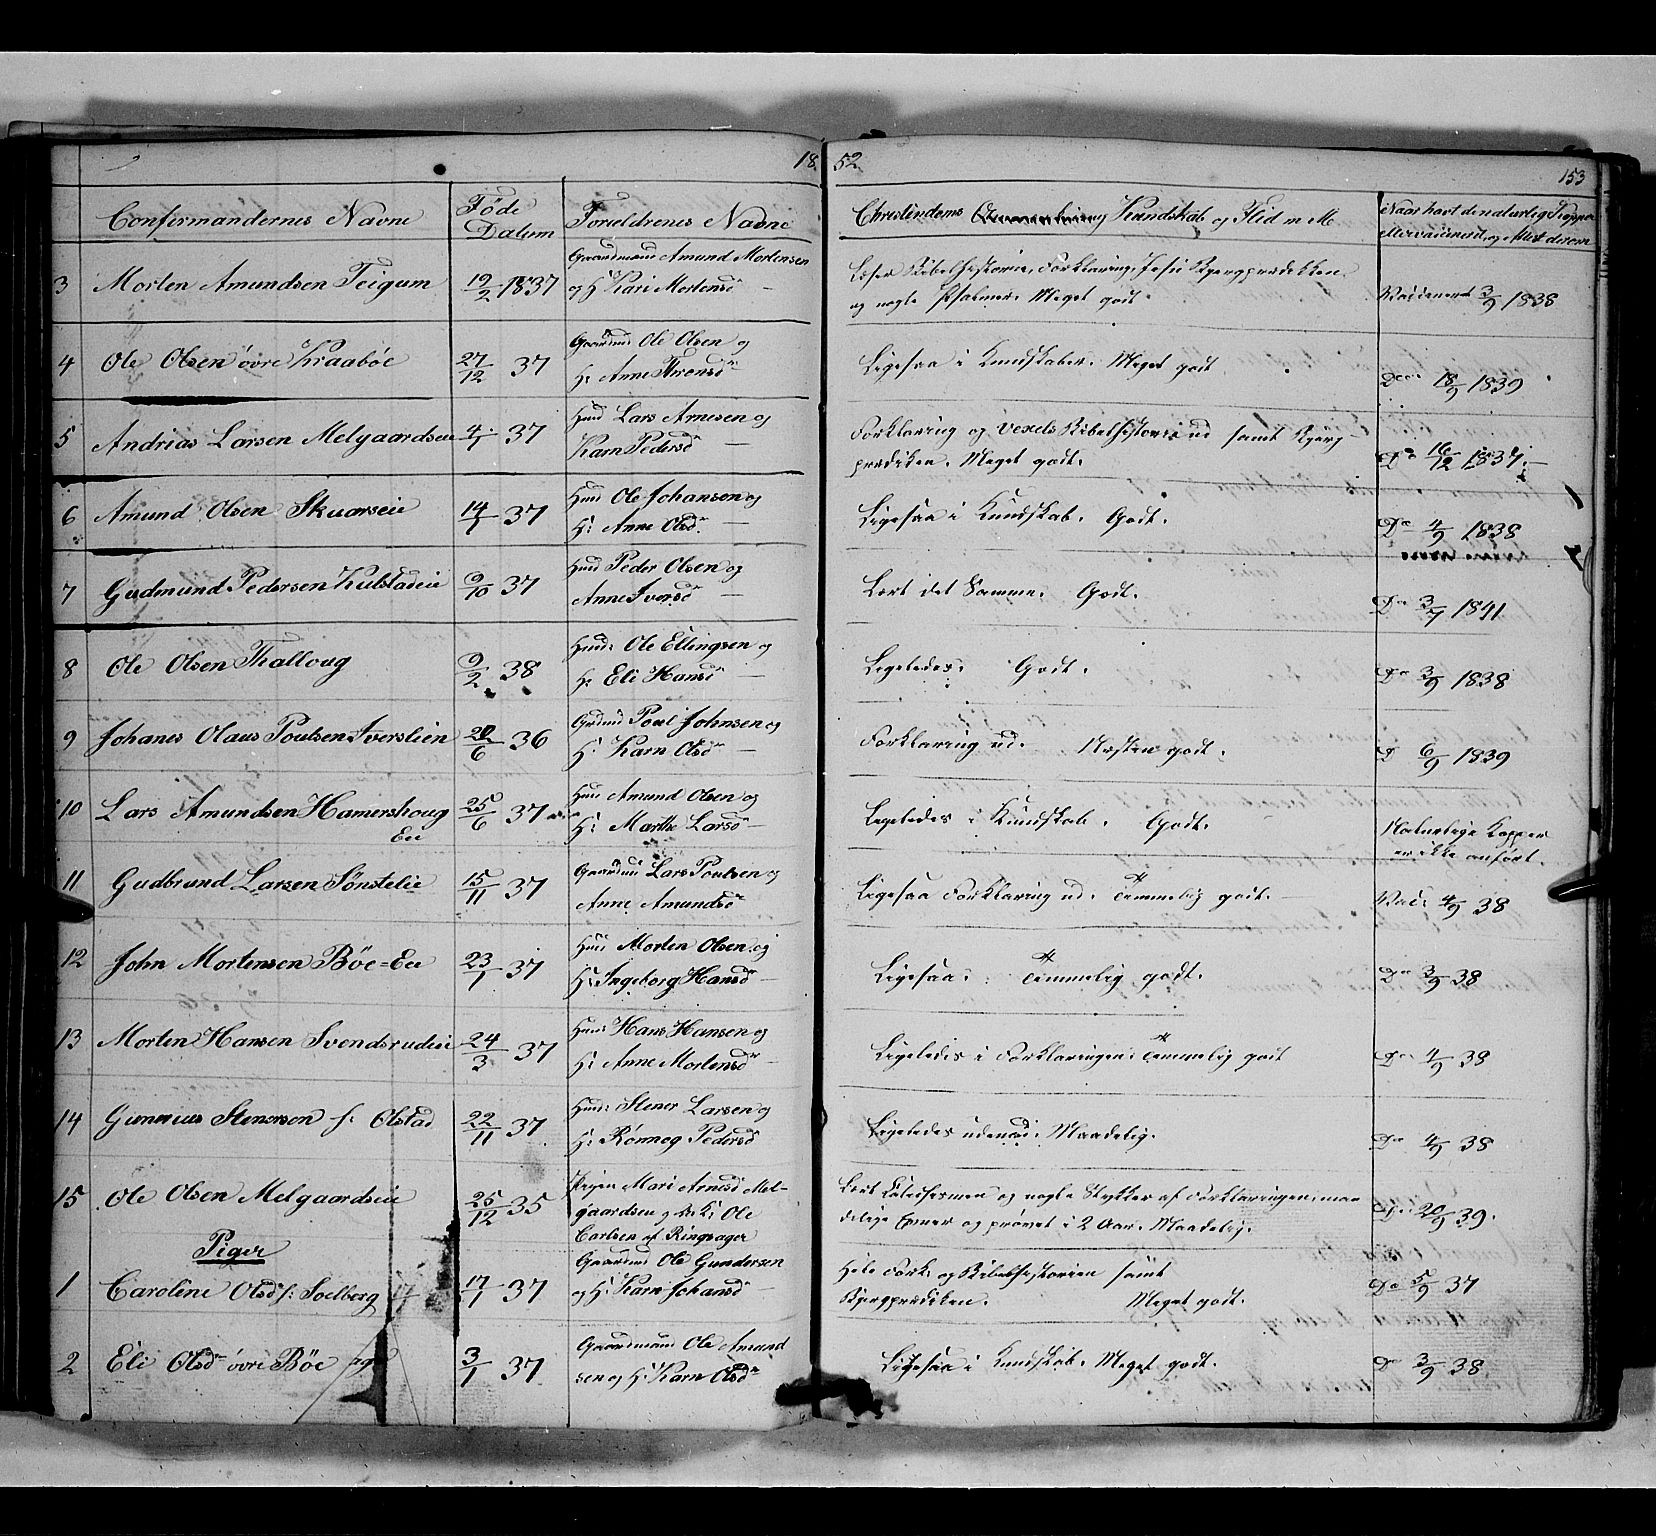 18 52
153
Confermandernes Navne
Føde Datum
Foreldrenes Navne
Christendoms Kundskab og Flid m M.
Naar havt de naturlig Kopper
eller vaccineret, og Attest derom
3 Morten Amundsen Teigum 19/2 1837
Gaardmand Amund Mortensen
og H: Kari Mortensd –
Læser Bibelhistorie, Forklaring, Jesu Bjergprædikken
og nogle Psalmer. Meget godt.
Vaccineret 3/9 1838
4 Ole Olsen øvre Kraabøe 27/12 37
Gaardmd Ole Olsen og
H: Anne
Ligesaa i Kundskaber. Meget godt
Do 18/9 1839
5 Andrias Larsen Melgaardseie 4/1 37
Huusd Lars Arnesen og
Karn Pedersd –
Forklaring og Vexels Bibelhistorie ud samt Bjerg-
prædiken. Meget godt.
Do 16/12 1837.
6 Amund Olsen Skuarseie 14/1 37
Huusd Ole Johansen og
H: Anne Olsd. –
Ligesaa i Kundskab. Godt.
Do 4/9 1838
7 Gudmund Pedersen Kulstadeie 9/10 37
Huusd Peder Olsen og
Anne Iversd –
Lært det Samme. Godt.
Do 3/7 1841
8 Ole Olsen Thalloug 9/2 38
Huusd: Ole Ellingsen og
H: Eli Hansd –
Ligeledes. Godt.
Do 3/9 1838
9 Johanes Olaus Poulsen Iverslien 6 36
Grdmd Poul Johnsen og
H. Karn Olsd –
Forklaring ud. Næsten godt.
D 6/9 1839
10 Lars Amundsen Hamershoug 25/6 37
Eie
Huusd Amund Olsen og
H: Marthe Larsd –
Ligeledes i Kundskab. Godt.
Naturlige Kopper
er ikke anført.
11 Gudbrand Larsen Sønstelie 15/11 37
Gaardmd Lars Poulsen og
Anne Amundsd
Ligesaa Forklaring ud. Temmelig godt.
Vac: 4/9 38
12 John Mortensen Bøe=Eie 23/1 37
Huusd Morten Olsen og
H: Ingeborg Hansd –
Ligesaa. Temmelig godt.
Do 3/9 38
13 Morten Hansen Svendsrudeie 24/3 37
Huusd Hans Hansen og
H: Anne Mortensd –
Ligeledes i Forklaringen. Temmelig godt
Do 4/9 38
14 Gunerius Stenersen f: Olstad 22/11 37
Huusd: Stener Larsen og
H: Rønneg Pedersd
Ligeledes udenad. Maadelig.
Do 4/9 38
15 Ole Olsen Melgaardseie 25/12 35
Pigen Mari Arnesd Mel-
gaardseie og Ole
Carlsen af Ringsager
Lært Catechismen og nogle Stykker af Forklaringen, maa
delige Evner og prøvet i 2 Aar. Maadelig.
20/9 39.
Piger
1 Caroline Olsd f: Soelberg 17/1 37
Gaardmd Ole Gundersen
og H: Karn Johansd –
Hele Fork: og Bibelhistorien samt
Bjergprædiken. Meget godt.
Do 5/9 37
2 Eli Olsd øvre Bøe 3/1 37
Gaardmand Ole Amund
sen og H: Karn Olsd
Ligesaa i Kundskab. Meget godt.
Do 3/9 38